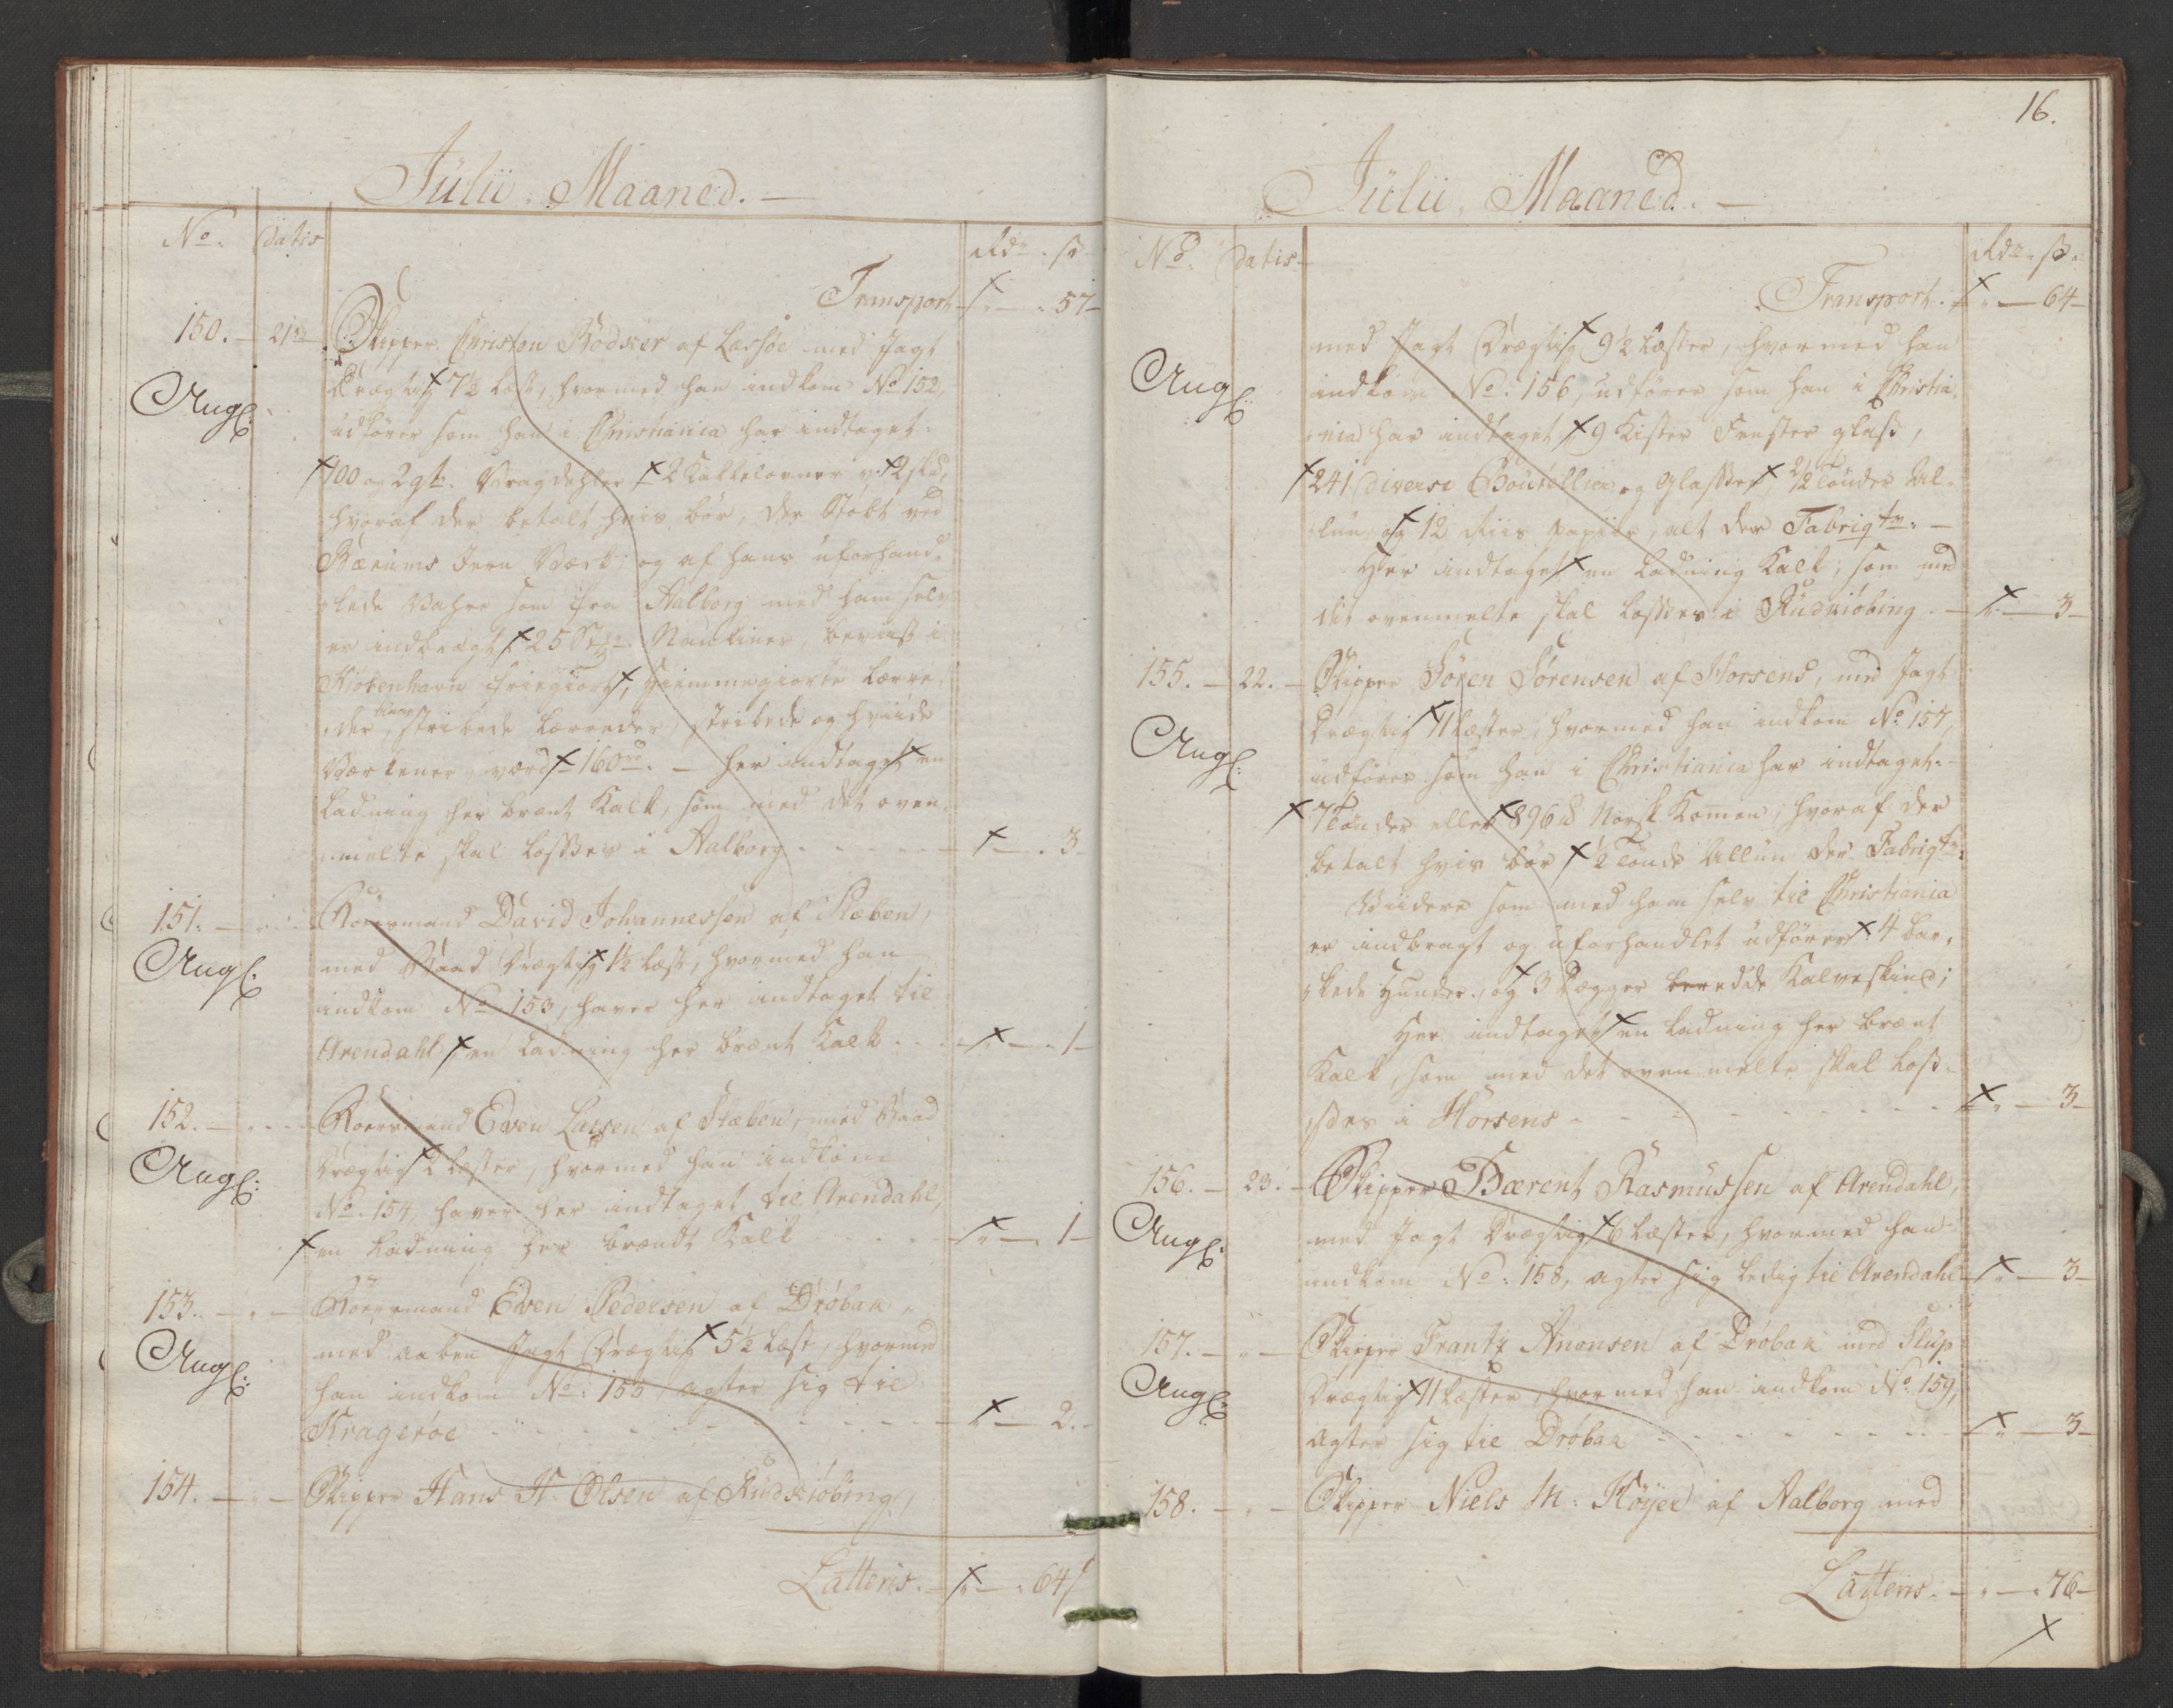 Julii Maaned. —
No. datis Rdr. ß
Transport " — " 57 —
150. — 21de — Skipper Christen Bodker af Læssøe med Jagt
drægtig 7½ læst, hvormed han indkom No 152,
Angl:
udfører som han i Christiania har indtaget:
700 og 2 gt: Vragdehler 2 Kakkelovner v: 2 skd,
hvoraf der betalt hvis bør, der Støbt ved
Bærums Jern Værk; og af hans uforhand-
lede Vahre som fra Aalborg med ham selv
er indbragt 25 St. Nankiner, beviist i
Kiøbenhavn friegiort, hiemmegiorte Lærre-
der, blaae stribede Lærreder, stribede og hviide
Værkener, værd 160 rd. — her indtaget en
Ladning her brænt Kalk, som med det oven-
meldte skal lossses i Aalborg - - - - - " — " 3 —
151. — " — Roersmand David Johannessen af Stæben,
Angl:
med Baad drægtig 1½ læst, hvormed han
indkom No 153, haver her indtaget til
Arendahl en Ladning her brænt Kalk - - " — " 1 —
152. — " — Roersmand Even Larsen af Stæben, med Baad
drægtig 2 læster, hvormed han indkom
Angl:
No. 154, haver her indtaget til Arendahl,
en Ladning her brændt Kalk - - - " — " 1 —
153. — " — Roersmand Even Pedersen af Drøbak,
med aaben Jagt drægtig 5½ læst, hvormed
Angl:
han indkom No: 155, agter sig til
Kragerøe - - - - - - - " — 2. —
154. — " — Skipper Hans H. Olsen af Rudkiøbing,
Latteris. — " — " 64 ß
16.
Julii Maaned. —
No. datis Rdr. ß.
Transport. " — 64 —
med Jagt drægtig 9½ læster, hvormed han
Angl:
indkom No: 156, udfører som han i Christia-
nia har indtaget 9 Kister Fenster glass,
241 diverse Bouteillier og Glasser, 2½ Tønder Al-
lun, og 12 Riis papiir, alt der Fabrigt:. —
Her indtaget en Ladning Kalk, som med
det ovenmelte skal losses i Rudkiøbing. — " — 3 —
155. — 22. — Skipper Søren Sørensen af Horsens, med Jagt
drægtig 11 læster, hvormed han indkom No 157,
Angl:
udfører som han i Christiania har indtaget: —
7 Tønder eller 896 ℔ Norsk Komen, hvoraf der
betalt hvis bør ½ Tønde Allun der Fabrigt:
Viidere som med ham selv til Christiania
er indbragt og uforhandlet udfører 4 bar-
kede Huuder, og 3 Dægger beredde Kalveskind;
Her indtaget en Ladning her brænt
Kalk, som med det ovenmelte skal loss-
ses i Horsens - - - - - - - " — 3 —
156. — 23. — Skipper Bærent Rasmussen af Arendahl,
Angl:
med Jagt drægtig 6 læster, hvormed han
indkom No: 158, agter sig ledig til Arendahl " — 3 —
157. — " — Skipper Frantz Anonsen af Drøbak med Slup
Angl:
drægtig 11 læster, hvormed han indkom No. 159,
agter sig til Drøbak - - - - - - " — 3 —
158. — " — Skipper Niels M: Høyer af Aalborg med
Latteris. — " — " 76 —